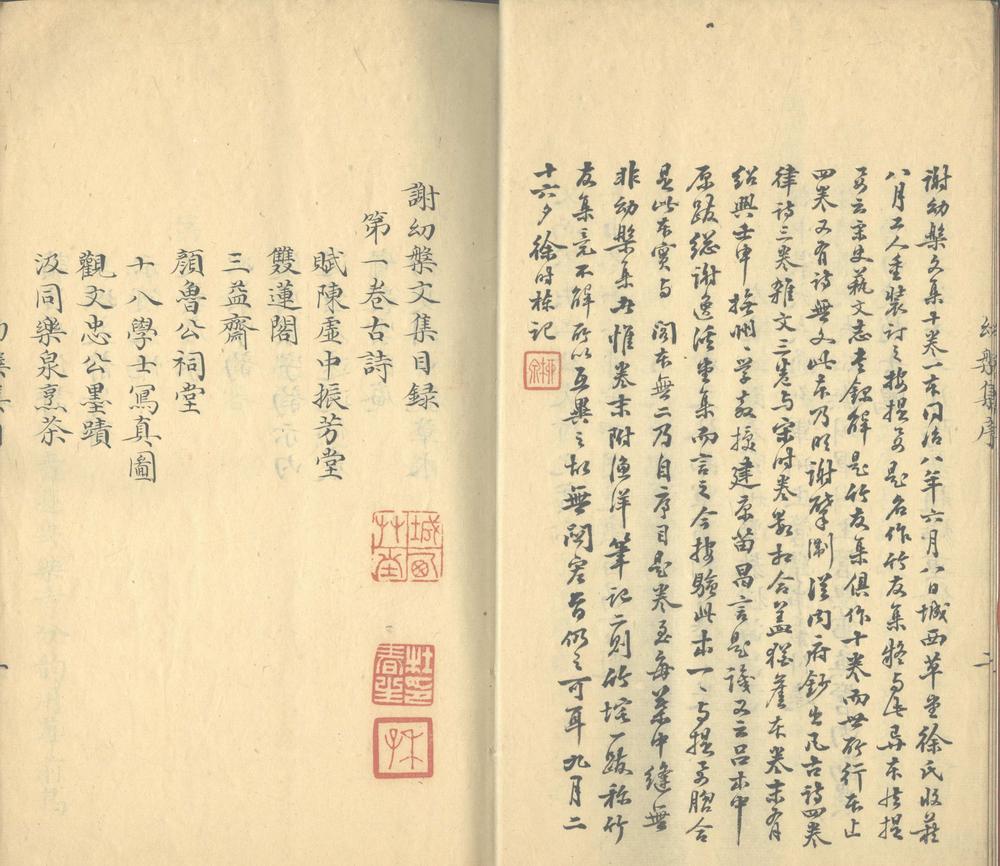 幼槃集序
二
謝幼槃文集十卷一本同治八年六月八日城西草堂徐氏收藏
八月工人重裝訂之按提要是名作竹友集與此異本然提
要云宋史藝文志書錄解是竹友集俱作十卷而世所行本止
四卷又有詩無文此本乃明謝肇淛從内府鈔出凡古詩四卷
律詩三卷雜文三卷与宋时卷數相合蓋猶舊本卷末有
紹興壬申 撫州〻学教授建原苗昌言是識又云呂本中
原跋総謝逸溪堂集而言之今按驗此本一〻与提要脗合
是此本實与 閣本無二乃自序目是卷至每葉中縫無
非幼槃集者惟卷末附漁洋筆記二則竹垞一跋称竹
友集竟不解所以互異之故無関宏旨仍之可耳九月二
十六夕徐时棟記
謝幼槃文集目録
第一卷古詩
賦陳虛中振芳堂
雙蓮閣
三益齋
顏魯公祠堂
十八學士寫真圖
觀文忠公墨蹟
汲同樂泉烹茶
城西草堂